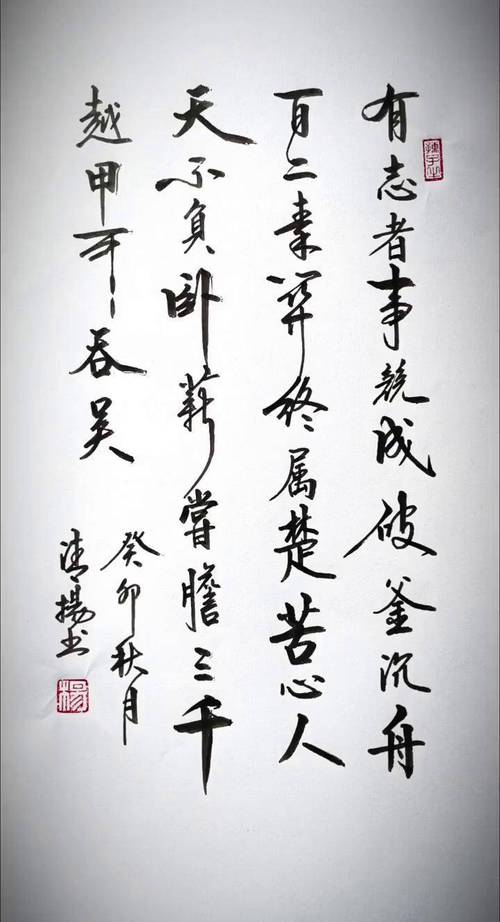 有志者事競成破釜沉舟
百二秦关终属楚苦心人
天不負卧薪嘗膽三千
越甲可吞吴
癸卯秋月
清揚书